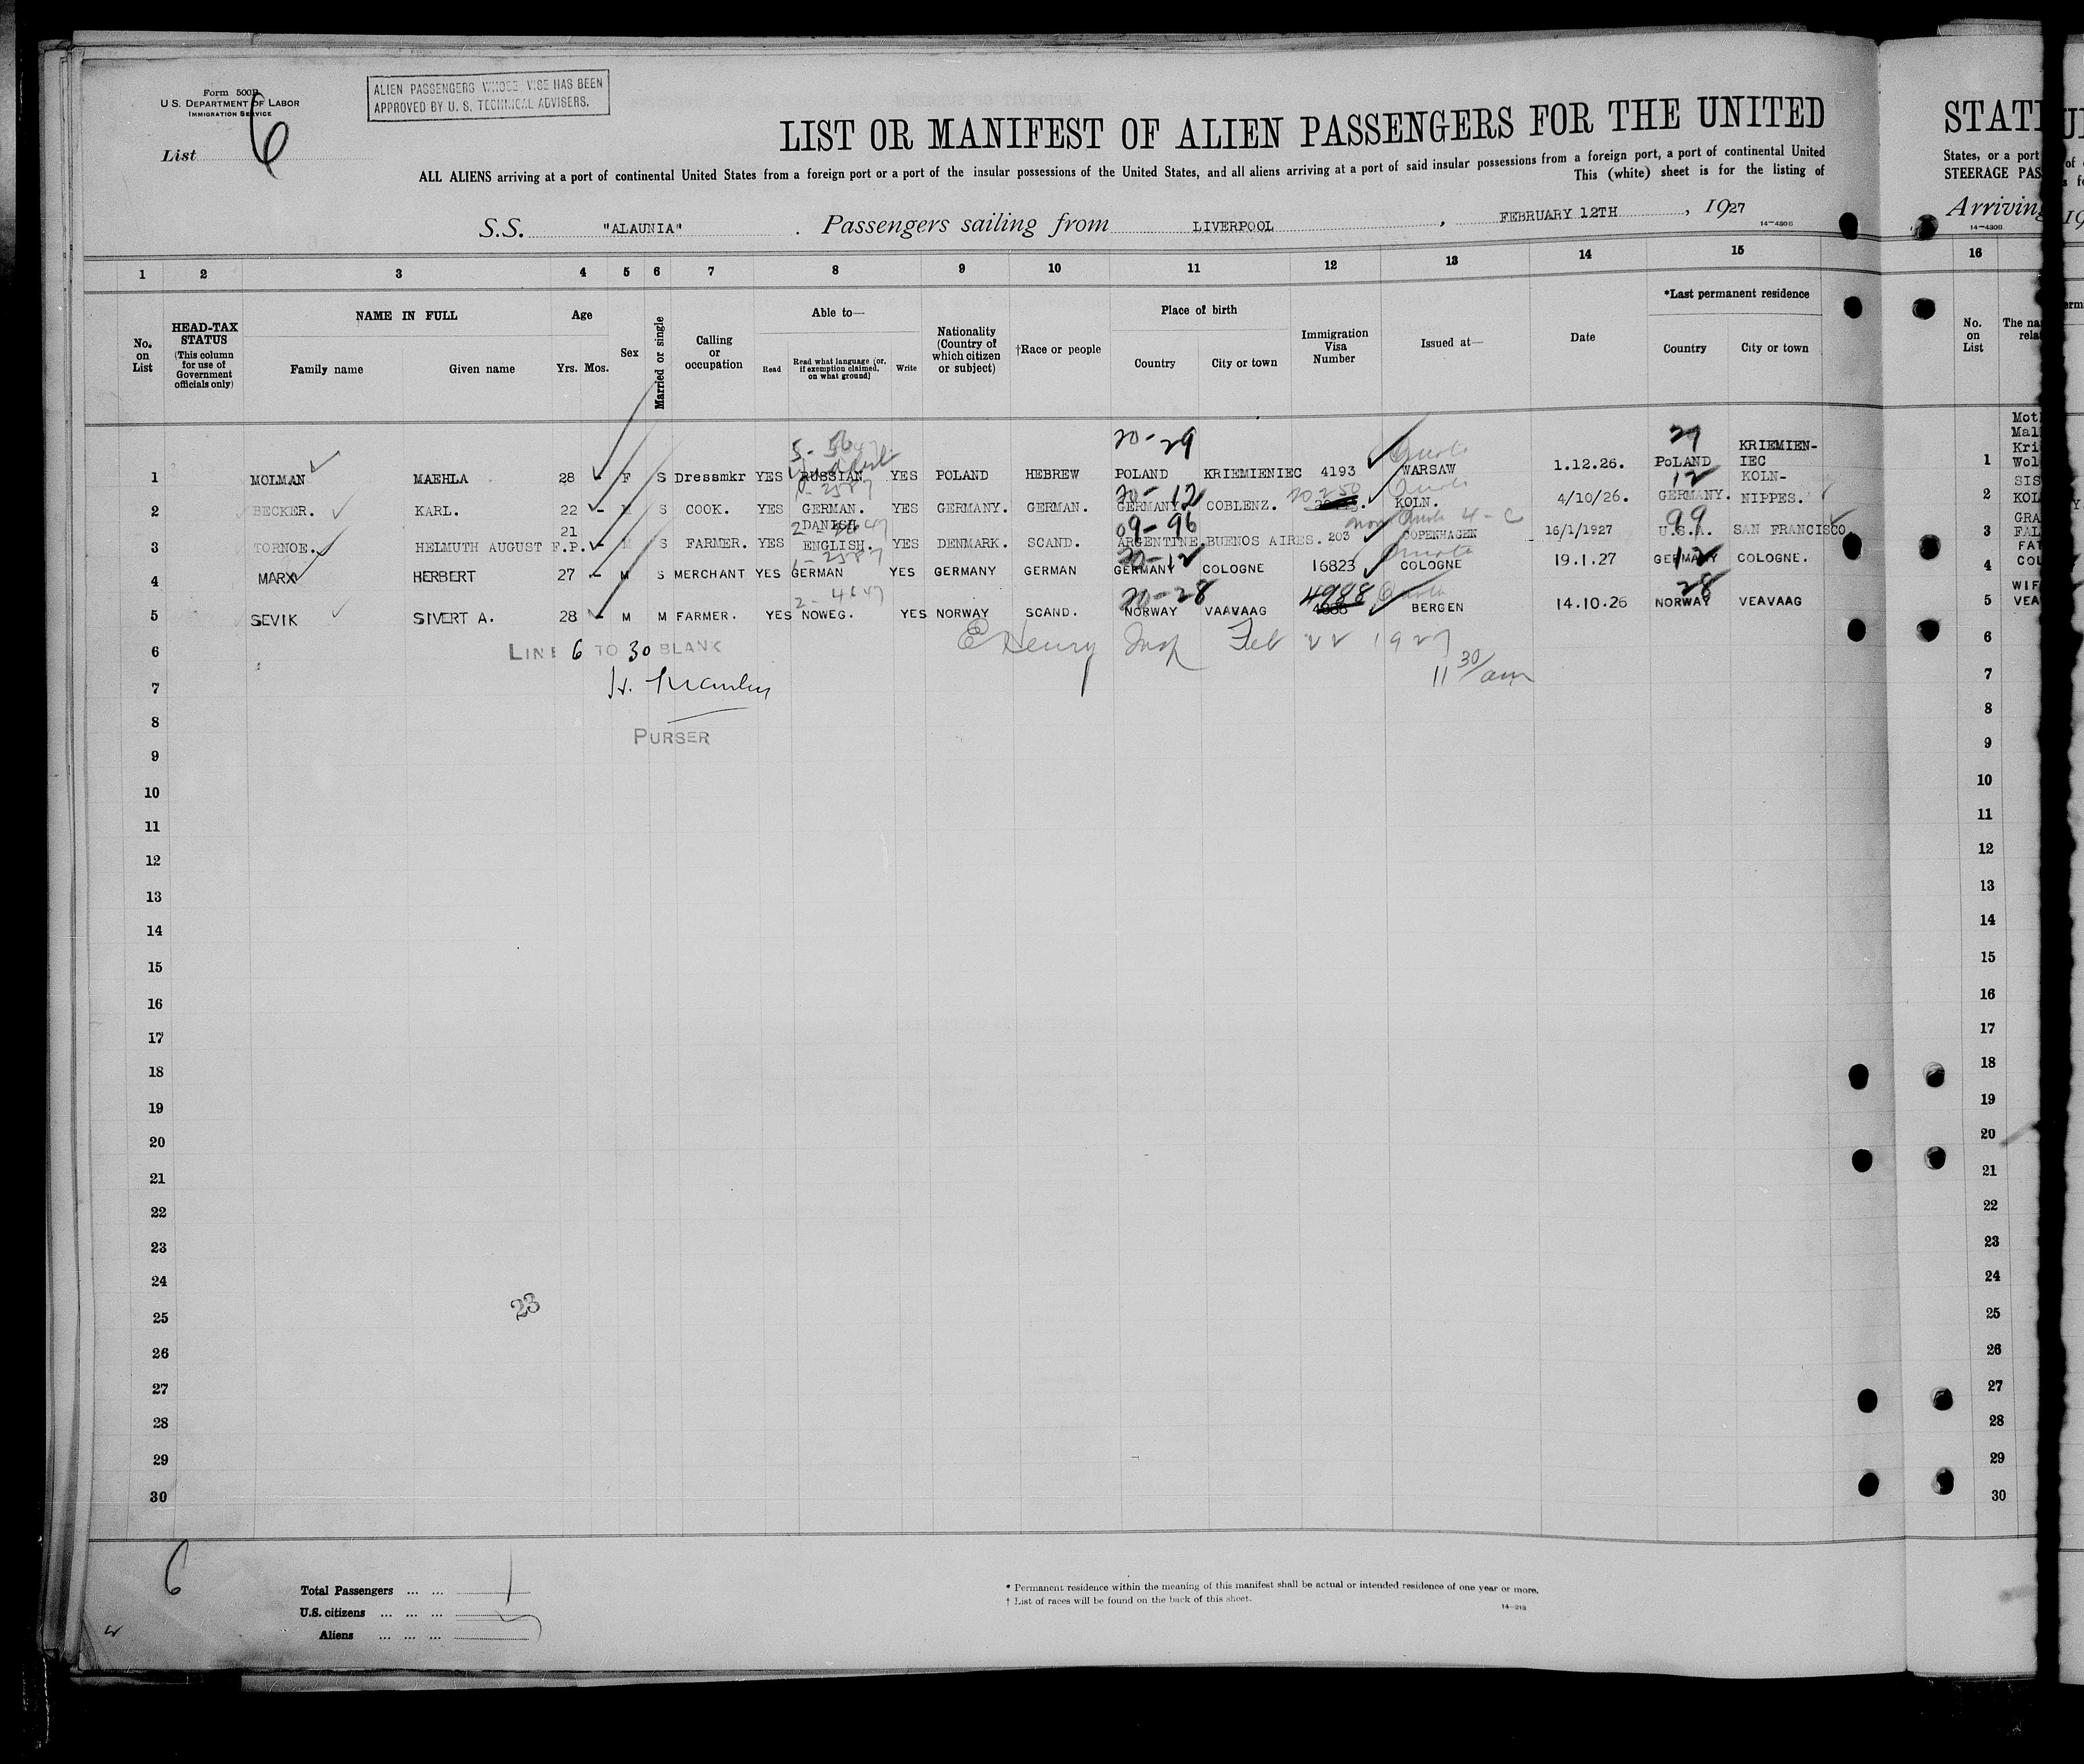 Form 500B
U.S. DEPARTMENT OF LABOR
IMMIGRATION SERVICE
List 6
ALIEN PASSENGERS WHOSE VISE HAS BEEN
APPROVED BY U. S. TECHNICAL ADVISERS.
LIST OR MANIFEST OF ALIEN PASSENGERS FOR THE UNITED
ALL ALIENS arriving at a port of continental United States from a foreign port or a port of the insular possessions of the United States, and all aliens arriving at a port of said insular possessions from a foreign port, a port of continental United
This (white) sheet is for the listing of
S.S. "ALAUNIA". Passengers sailing from LIVERPOOL, FEBRUARY 12TH, 1927
14-430B
1 2 3 4 5 6 7 8 9 10 11 12 13 14 15
No. on List
HEAD-TAX STATUS (This column for use of Government officials only)
NAME IN FULL
Family name Given name
Age
Yrs. Mos.
Sex
Married or single
Calling or occupation
Able to—
Read Read what language (or, if exemption claimed, on what ground) Write
Nationality (Country of which citizen or subject)
†Race or people
Place of birth
Country City or town
Immigration Visa Number
Issued at—
Date
*Last permanent residence
Country City or town
20-29 29
1 MOLMAN MAEHLA 28 - F S Dressmkr YES RUSSIAN YES POLAND HEBREW POLAND KRIEMIENIEC 4193 WARSAW 1.12.26. POLAND KRIEMIEN-IEC
20-12 20250 Quota 12
2 BECKER. KARL. 22 - M S COOK. YES GERMAN. YES GERMANY. GERMAN. GERMANY. COBLENZ. KOLN. 4/10/26. GERMANY. KOLN-NIPPES.
09-96 non Quota 4-C 99
3 TORNOE. HELMUTH AUGUST F.P. 21 - M S FARMER. YES DANISH ENGLISH. YES DENMARK. SCAND. ARGENTINE. BUENOS AIRES. 203 COPENHAGEN 16/1/1927 U.S.A. SAN FRANCISCO
20-12 Quota 12
4 MARX HERBERT 27 - M S MERCHANT YES GERMAN YES GERMANY GERMAN GERMANY COLOGNE 16823 COLOGNE 19.1.27 GERMANY COLOGNE.
20-28 4988 Quota 28
5 SEVIK SIVERT A. 28 - M M FARMER. YES NOWEG. YES NORWAY SCAND. NORWAY VAAVAAG BERGEN 14.10.26 NORWAY VEAVAAG
6 LINE 6 TO 30 BLANK E Henry Insp Feb 22 1927
7 11 30/am
8
PURSER
9
10
11
12
13
14
15
16
17
18
19
20
21
22
23
24
25 23
26
27
28
29
30
6
Total Passengers ... ...
U.S. citizens ... ... ...
Aliens ... ... ...
* Permanent residence within the meaning of this manifest shall be actual or intended residence of one year or more.
† List of races will be found on the back of this sheet.
14-213
STATE
States, or a port
STEERAGE PAS
Arriving
14-430B
16
No. on List
The na
rela
Mot
Mal
Kri
1 Wol
SIS
2 KOL
GRA
3 FAL
FAT
4 COL
WIF
5 VEA
6
7
8
9
10
11
12
13
14
15
16
17
18
19
20
21
22
23
24
25
26
27
28
29
30